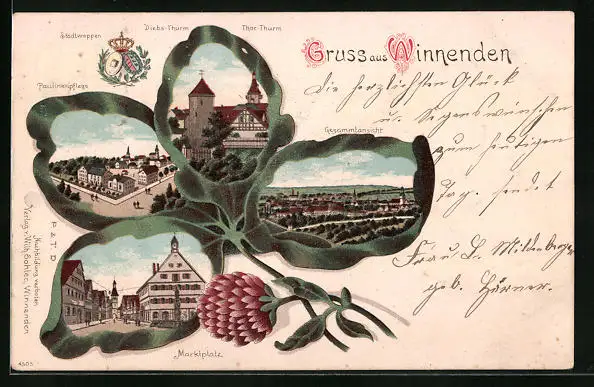 Stadtwappen
Diebs-Thurm
Thor-Thurm
Gruss aus Winnenden
Paulinenpflege
Gesammtansicht
Marktplatz
P. & T. D.
Nachbildung verboten
Verlag v. Wilh. Göhler, Winnenden
4505
Die herzlichsten Glück
u. Segenswünschen
zum heutigen
Tag sendet
Frau L.
geb.